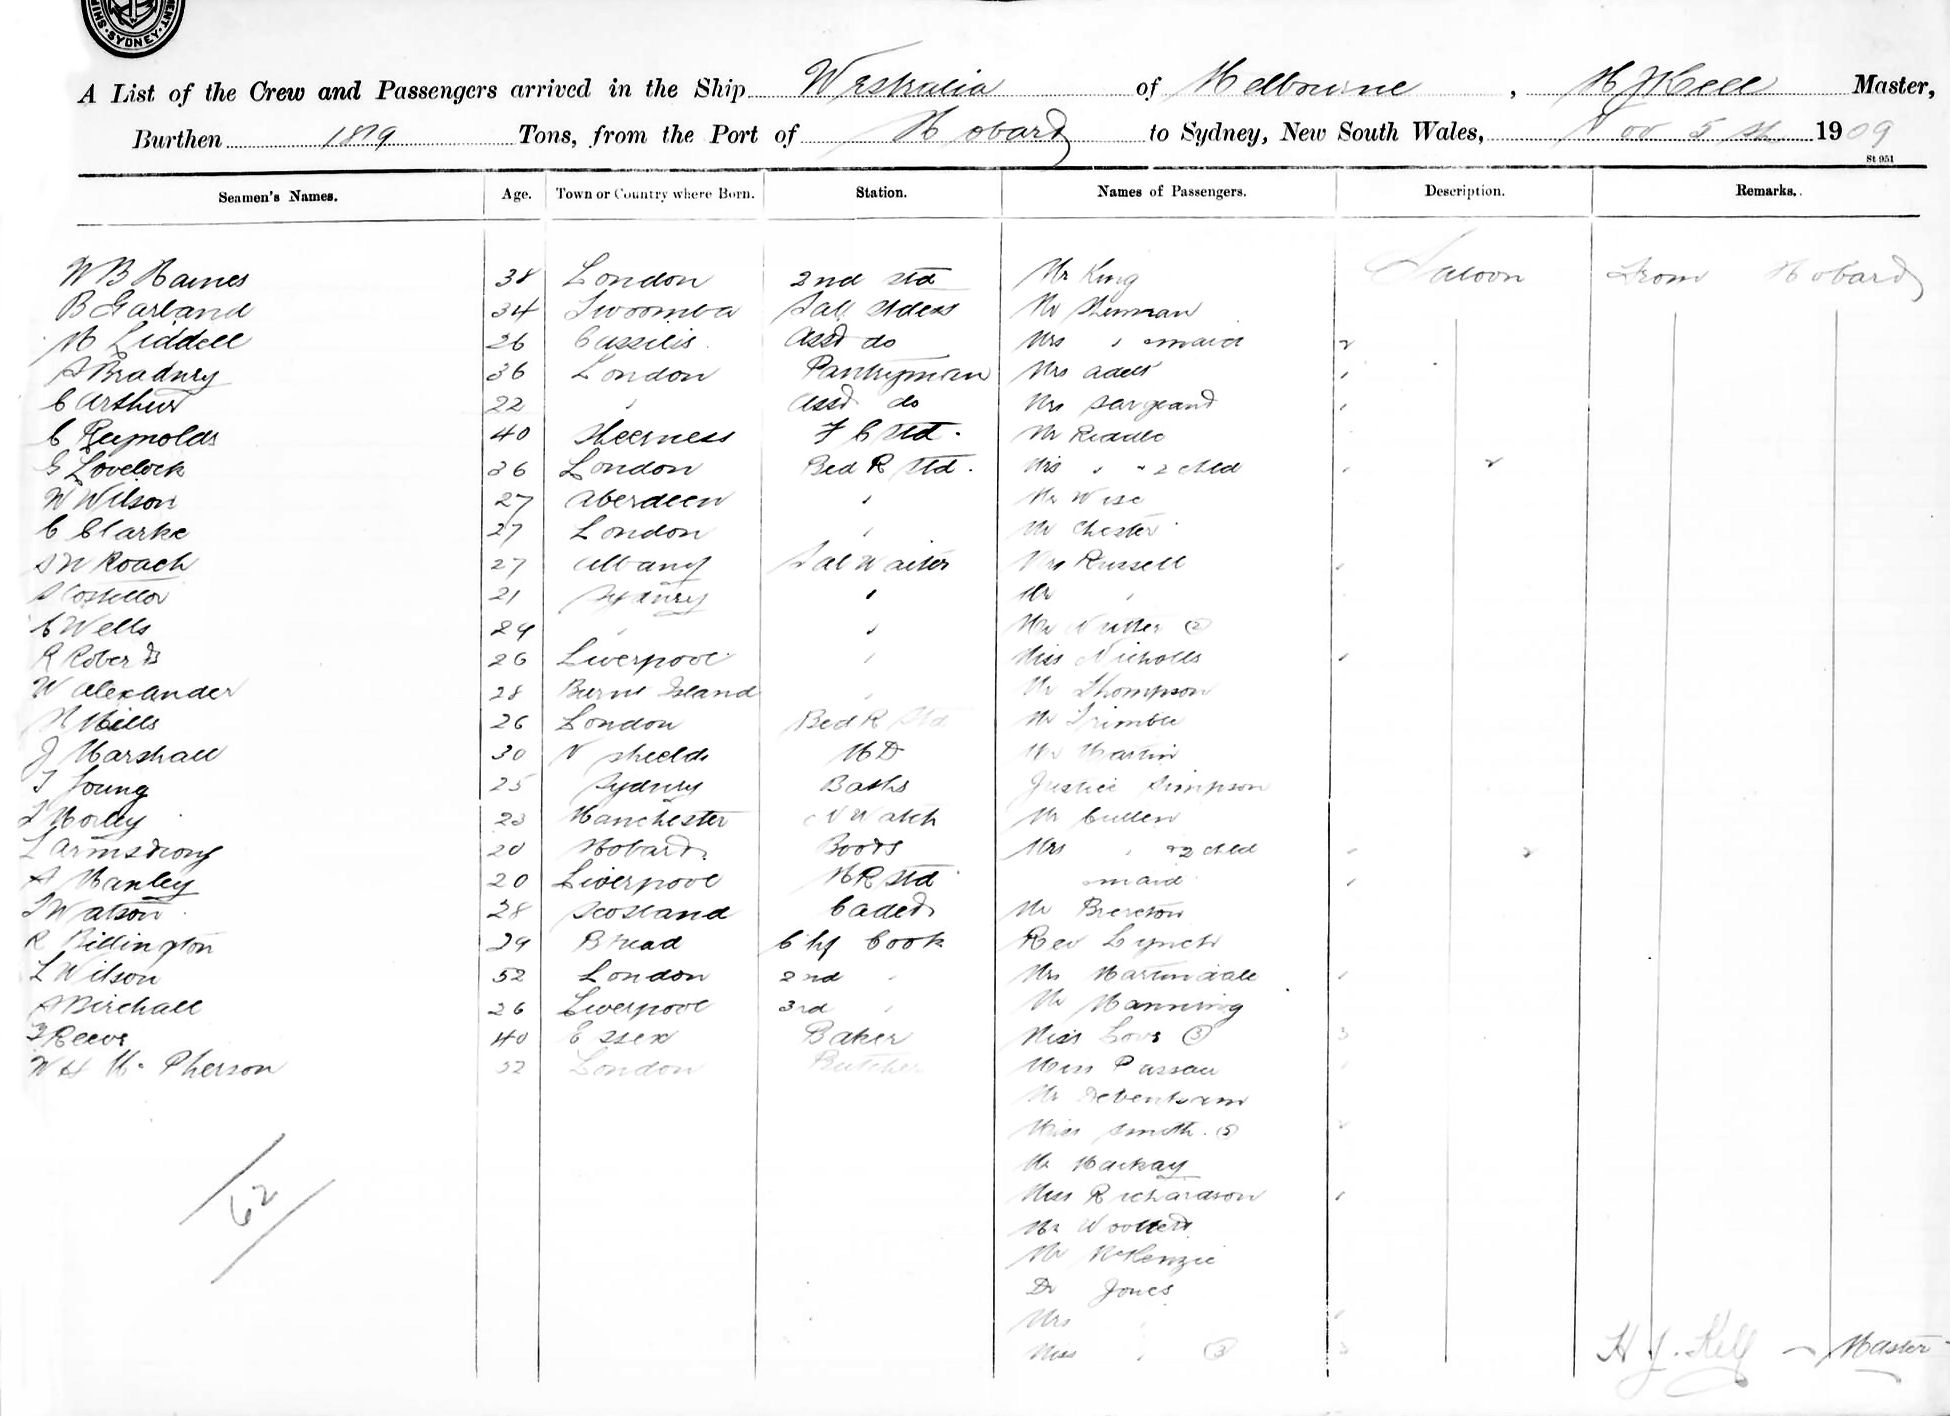 SYDNEY
A List of the Crew and Passengers arrived in the Ship Westralia of Melbourne, H J Kell Master,
Burthen 1819 Tons, from the Port of Hobart to Sydney, New South Wales, Nov 5th 1909
St 951
Seamen's Names. Age. Town or Country where Born. Station. Names of Passengers. Description. Remarks.
W B Haines 38 London 2nd Std Mr King Saloon From Hobart
B Garland 34 Twoomba Sal Stdess Mr Sherman
M Liddell 26 Cassilis Asst do Mrs " maid
S Bradury 36 London Pantryman Mrs Adett
C Arthur 22 " Asst do Mrs Sargeant
C Reynolds 40 Sheerness F C Std. Mr Riddle
G Lovelock 36 London Bed R Std. Mrs " " 2 chld
W Wilson 27 Aberdeen " Mr Wise
C Clarke 27 London " Mr Chester
S W Roach 27 Albany Sal Waiter Mrs Russell
S Costello 21 Sydney " Mr "
C Wells 29 " " Mr Nutter (2)
R Roberts 26 Liverpool " Miss Nicholls
W Alexander 28 Burnt Island " Mr Thompson
H Mills 26 London Bed R Std Mr Trimble
J Marshall 30 N Shields M D Mr Martin
T Young 25 Sydney Baths Justice Simpson
T Morley 23 Manchester N Watch Mr Cullen
L Armstrong 20 Hobart Boots Mrs " + 2 chld
A Manley 20 Liverpool M R Std maid
T Watson 28 Scotland Cadet Mr Brereton
R Billington 29 At sea Chf Cook Rev Lynch
L Wilson 52 London 2nd " Mrs Martindale
A Birchall 26 Liverpool 3rd " Mr Manning
F Reeve 40 Essex Baker Miss Love (3) 3
W H Mc Pherson 52 London Butcher Miss Passau
Mr Debenham
Miss Smith
Mr Mackay
Miss Richardson
Mr Woollett
Mr McKenzie
Dr Jones
Mrs "
Miss " (3) 3
62
H J. Kell Master